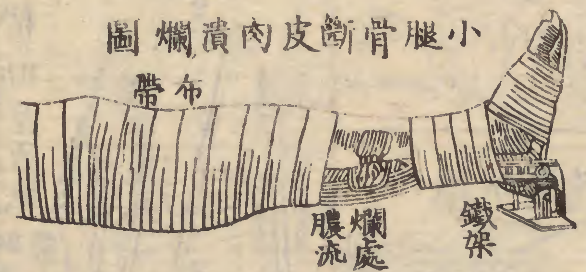 小腿骨斷皮肉潰爛圖
布帶
爛處
膿流
鐵架